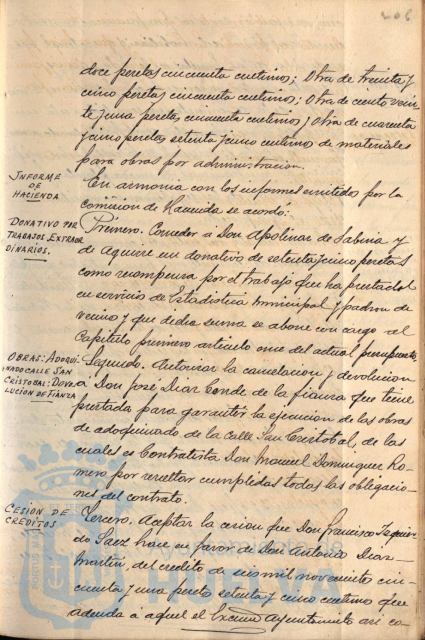 206
doce pesetas cincuenta centimos; Otra de treinta y
cinco pesetas cincuenta centimos; Otra de ciento vein-
te y una pesetas cincuenta centimos y otra de cuarenta
y cinco pesetas setenta y cinco centimos de materiales
para obras por administracion.
INFORME
DE
HACIENDA
En armonia con los informes emitidos por la
comision de Hacienda se acordó:
DONATIVO POR
TRABAJOS EXTRAOR
DINARIOS.
Primero. Conceder a Don Apolinar de Sabina y
de Aguirre un donativo de setenta y cinco pesetas
como recompensa por el trabajo que ha prestado
en servicio de Estadistica municipal y padron de
vecinos y que dicha suma se abone con cargo al
Capitulo primero articulo once del actual presupuesto
OBRAS: ADOQUI-
NADO CALLE SAN
CRISTOBAL: DEVO-
LUCION DE FIANZA
Segundo. Autorizar la cancelacion y devolucion
a Don José Diaz Conde de la fianza que tiene
prestada para garantir la ejecucion de las obras
de adoquinado de la Calle San Cristobal, de las
cuales es Contratista Don Manuel Dominguez Ro-
mero por resultar cumplidas todas las obligacio-
nes del contrato.
CESION DE
CREDITOS
Tercero. Aceptar la cesion que Don Francisco Izquier-
do Saez hace en favor de Don Antonio Diaz
Martin, del credito de seis mil novecientas cin-
cuenta y una pesetas setenta y cinco centimos que
adeuda á aquel el Excmo Ayuntamiento asi co-